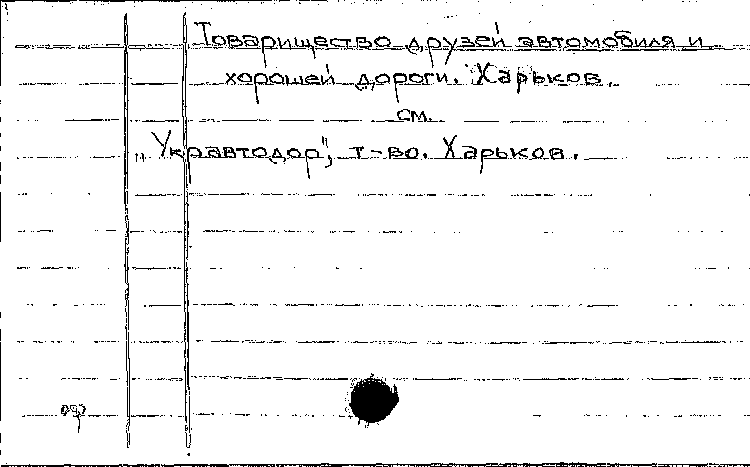 Товарищество друзей автомобиля и
хорошей дороги. Харьков.
см.
„Укравтодор", т-во. Харьков.